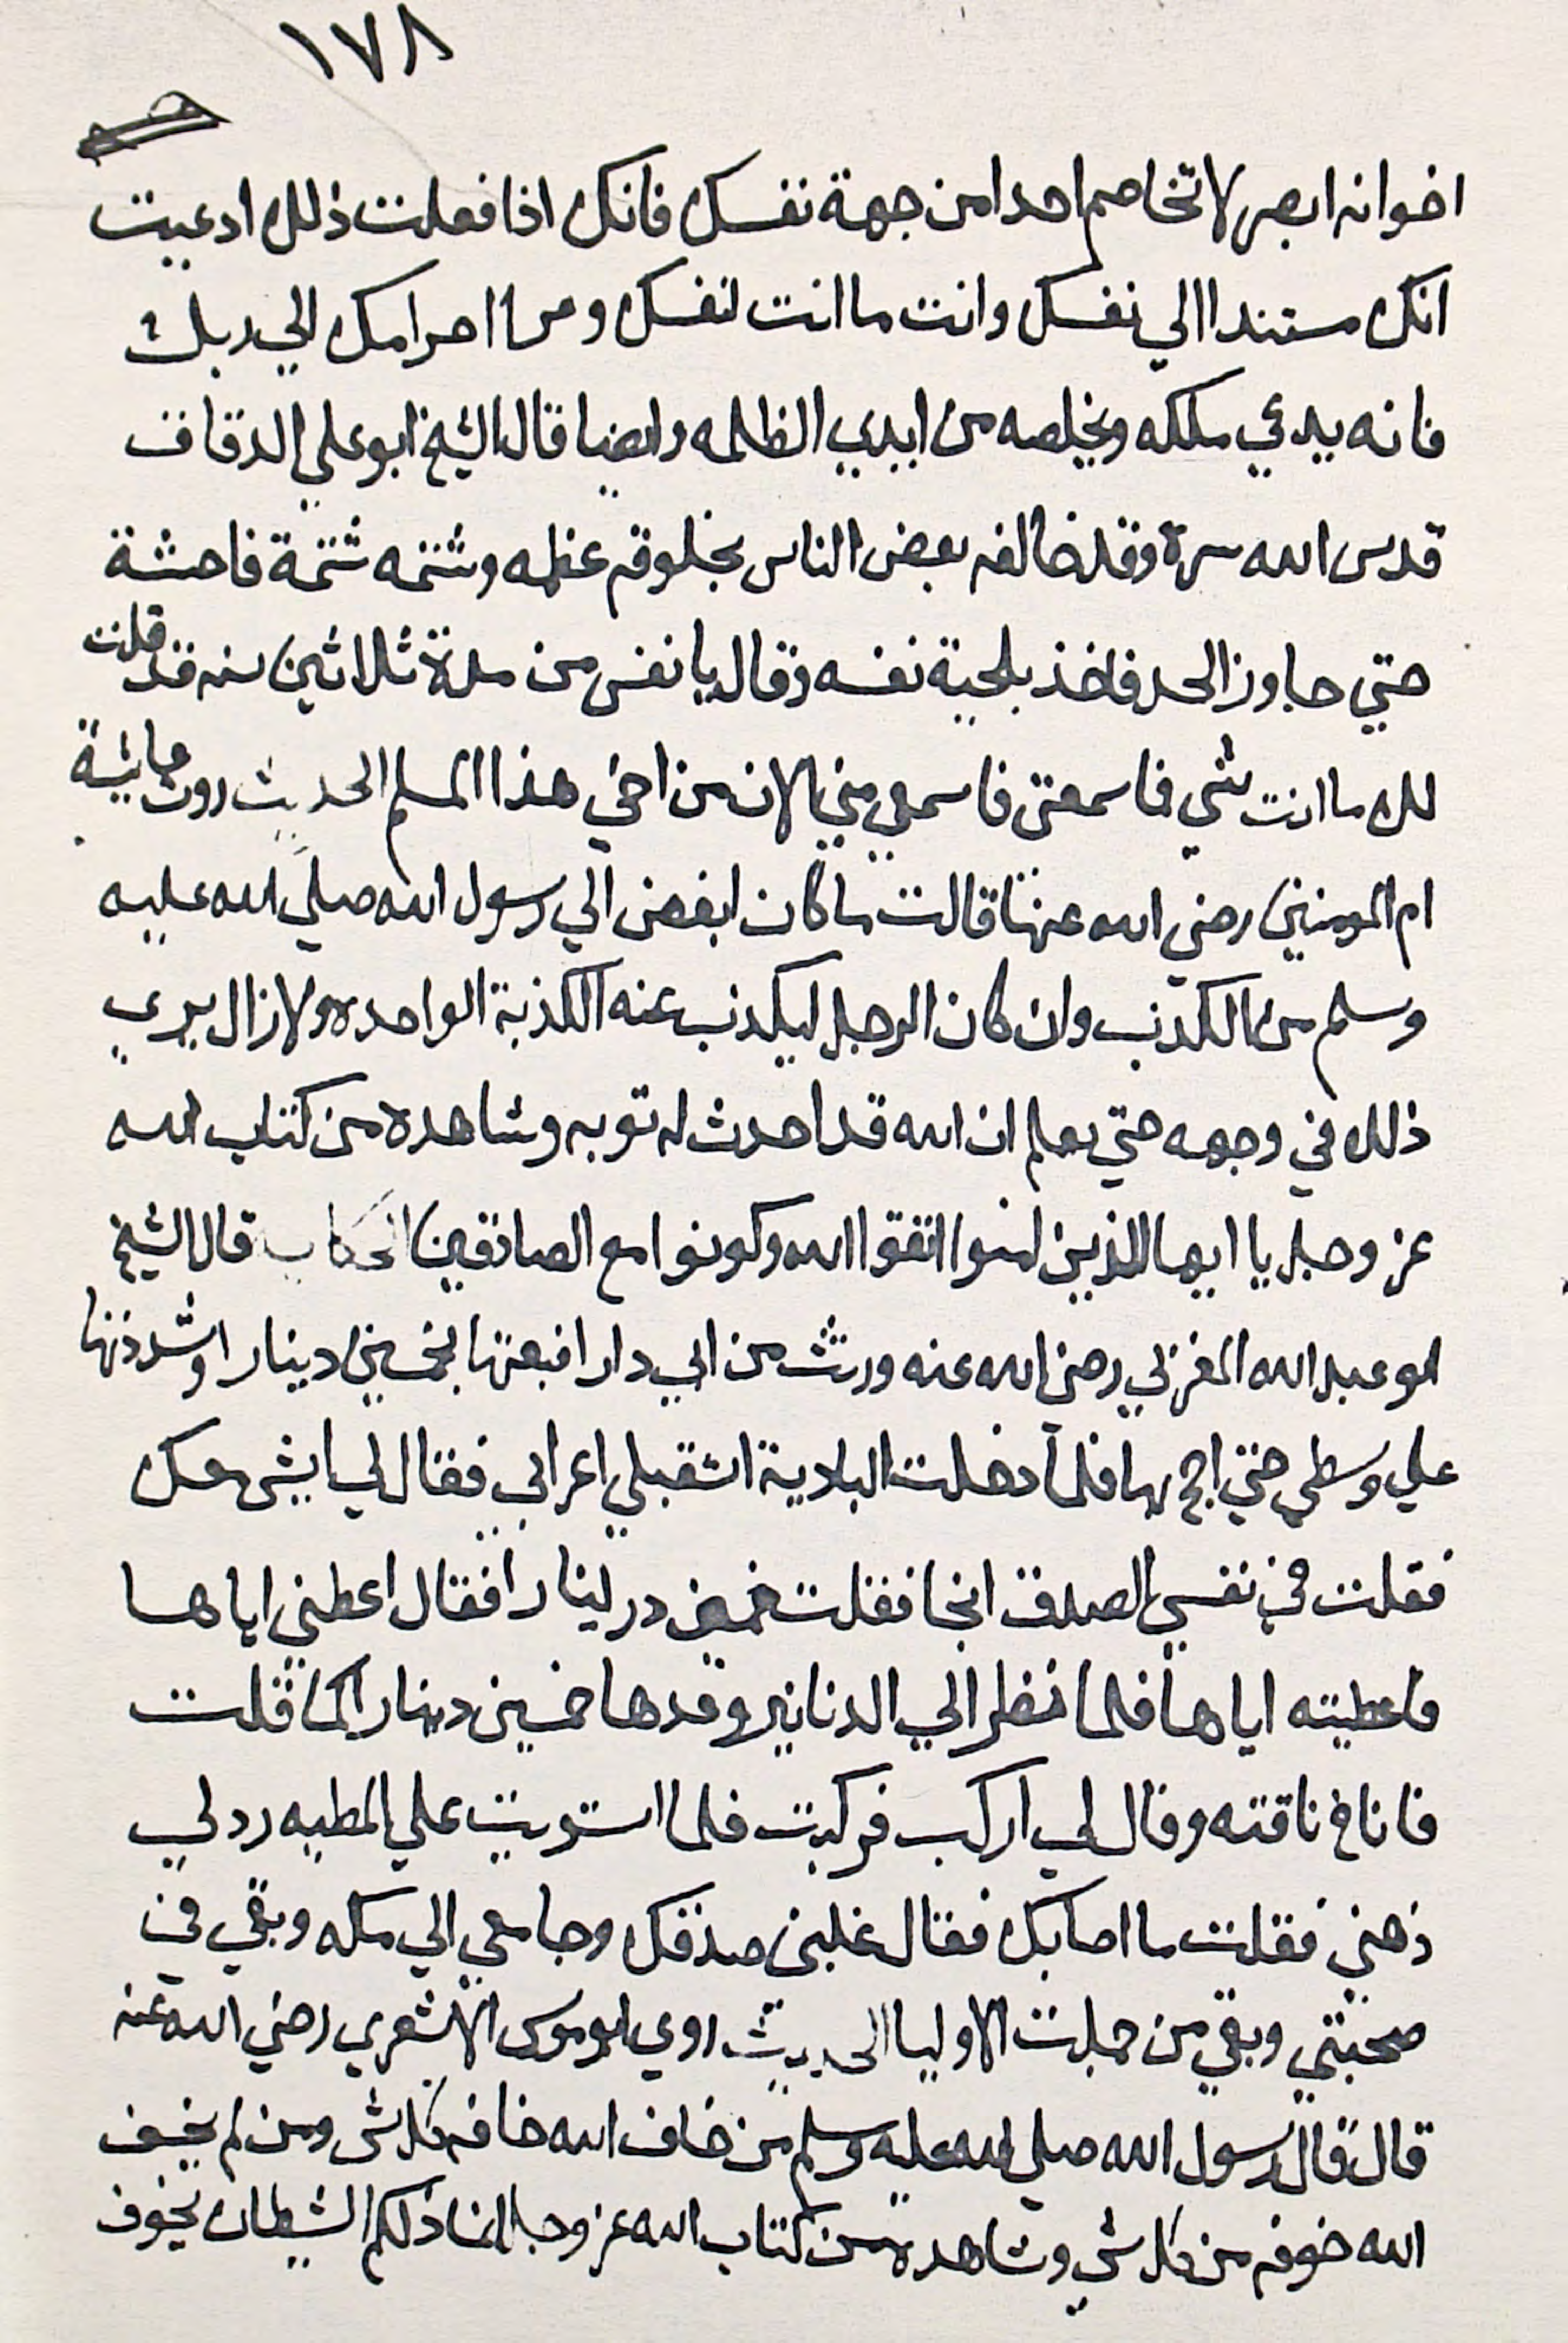 ١٧٨
اخوانه ابصر لا تخاصم احدا من جهة نفسك فانك اذا فعلت ذلك ادعيت
انك مستندا الي نفسك وانت ما انت لنفسك ومن احرامك الي ربك
فانه يدعي ملكه ويخلصه من ايدي الظلمه وايضا قال الشيخ ابو علي الدقاق
قدس الله سرة وقد خالفه بعض الناس بخلوقه عظه وشتمه شتمة فاحشة
حتي جاوز الحد فاخذ بلحية نفسه وقال يا نفس من مدة ثلاثين سنه قد قلت
لك ما انت شي فاسمعتي فاسمعي مني الان من اخي هذا المسلم الحديث روت عائشة
ام المومنين رضي الله عنها قالت ما كان ابغض الي رسول الله صلي الله عليه
وسلم من الكذب وان كان الرجل ليكذب عنه الكذبة الواحده ولا زال يري
ذلك في وجهه حتي يعلم ان الله قد احدث له توبه وشاهده من كتاب الله
عز وجل يا ايها الذين امنوا اتقوا الله وكونوا مع الصادقين الحكاية قال الشيخ
ابو عبد الله المغربي رضي الله عنه ورثت من ابي دارا فبعتها بخمسين دينارا وشددتها
علي وسطي حتي احج بها فلما دخلت البادية استقبلي اعرابي فقال لي ايش معك
فقلت في نفسي الصدق انجا فقلت خمسين دينارا فقال اعطني اياها
فاعطيته اياها فلما نظر الي الدنانير وعدها خمسين دينار كما قلت
فاناخ ناقته وقال لي اركب فركبت فلما استويت علي المطيه رد لي
ذهبي فقلت ما اصابك فقال غلبني صدقك وجا معي الي مكه وبقي في
صحبتي وبقي من جملت الاوليا الحديث روي ابو موسي الاشعري رضي الله عنه
قال قال رسول الله صلي الله عليه وسلم من خاف الله خافه كل شي ومن لم يخف
الله خوفه من كل شي وشاهده من كتاب الله عز وجل انما ذلكم الشيطان يخوف